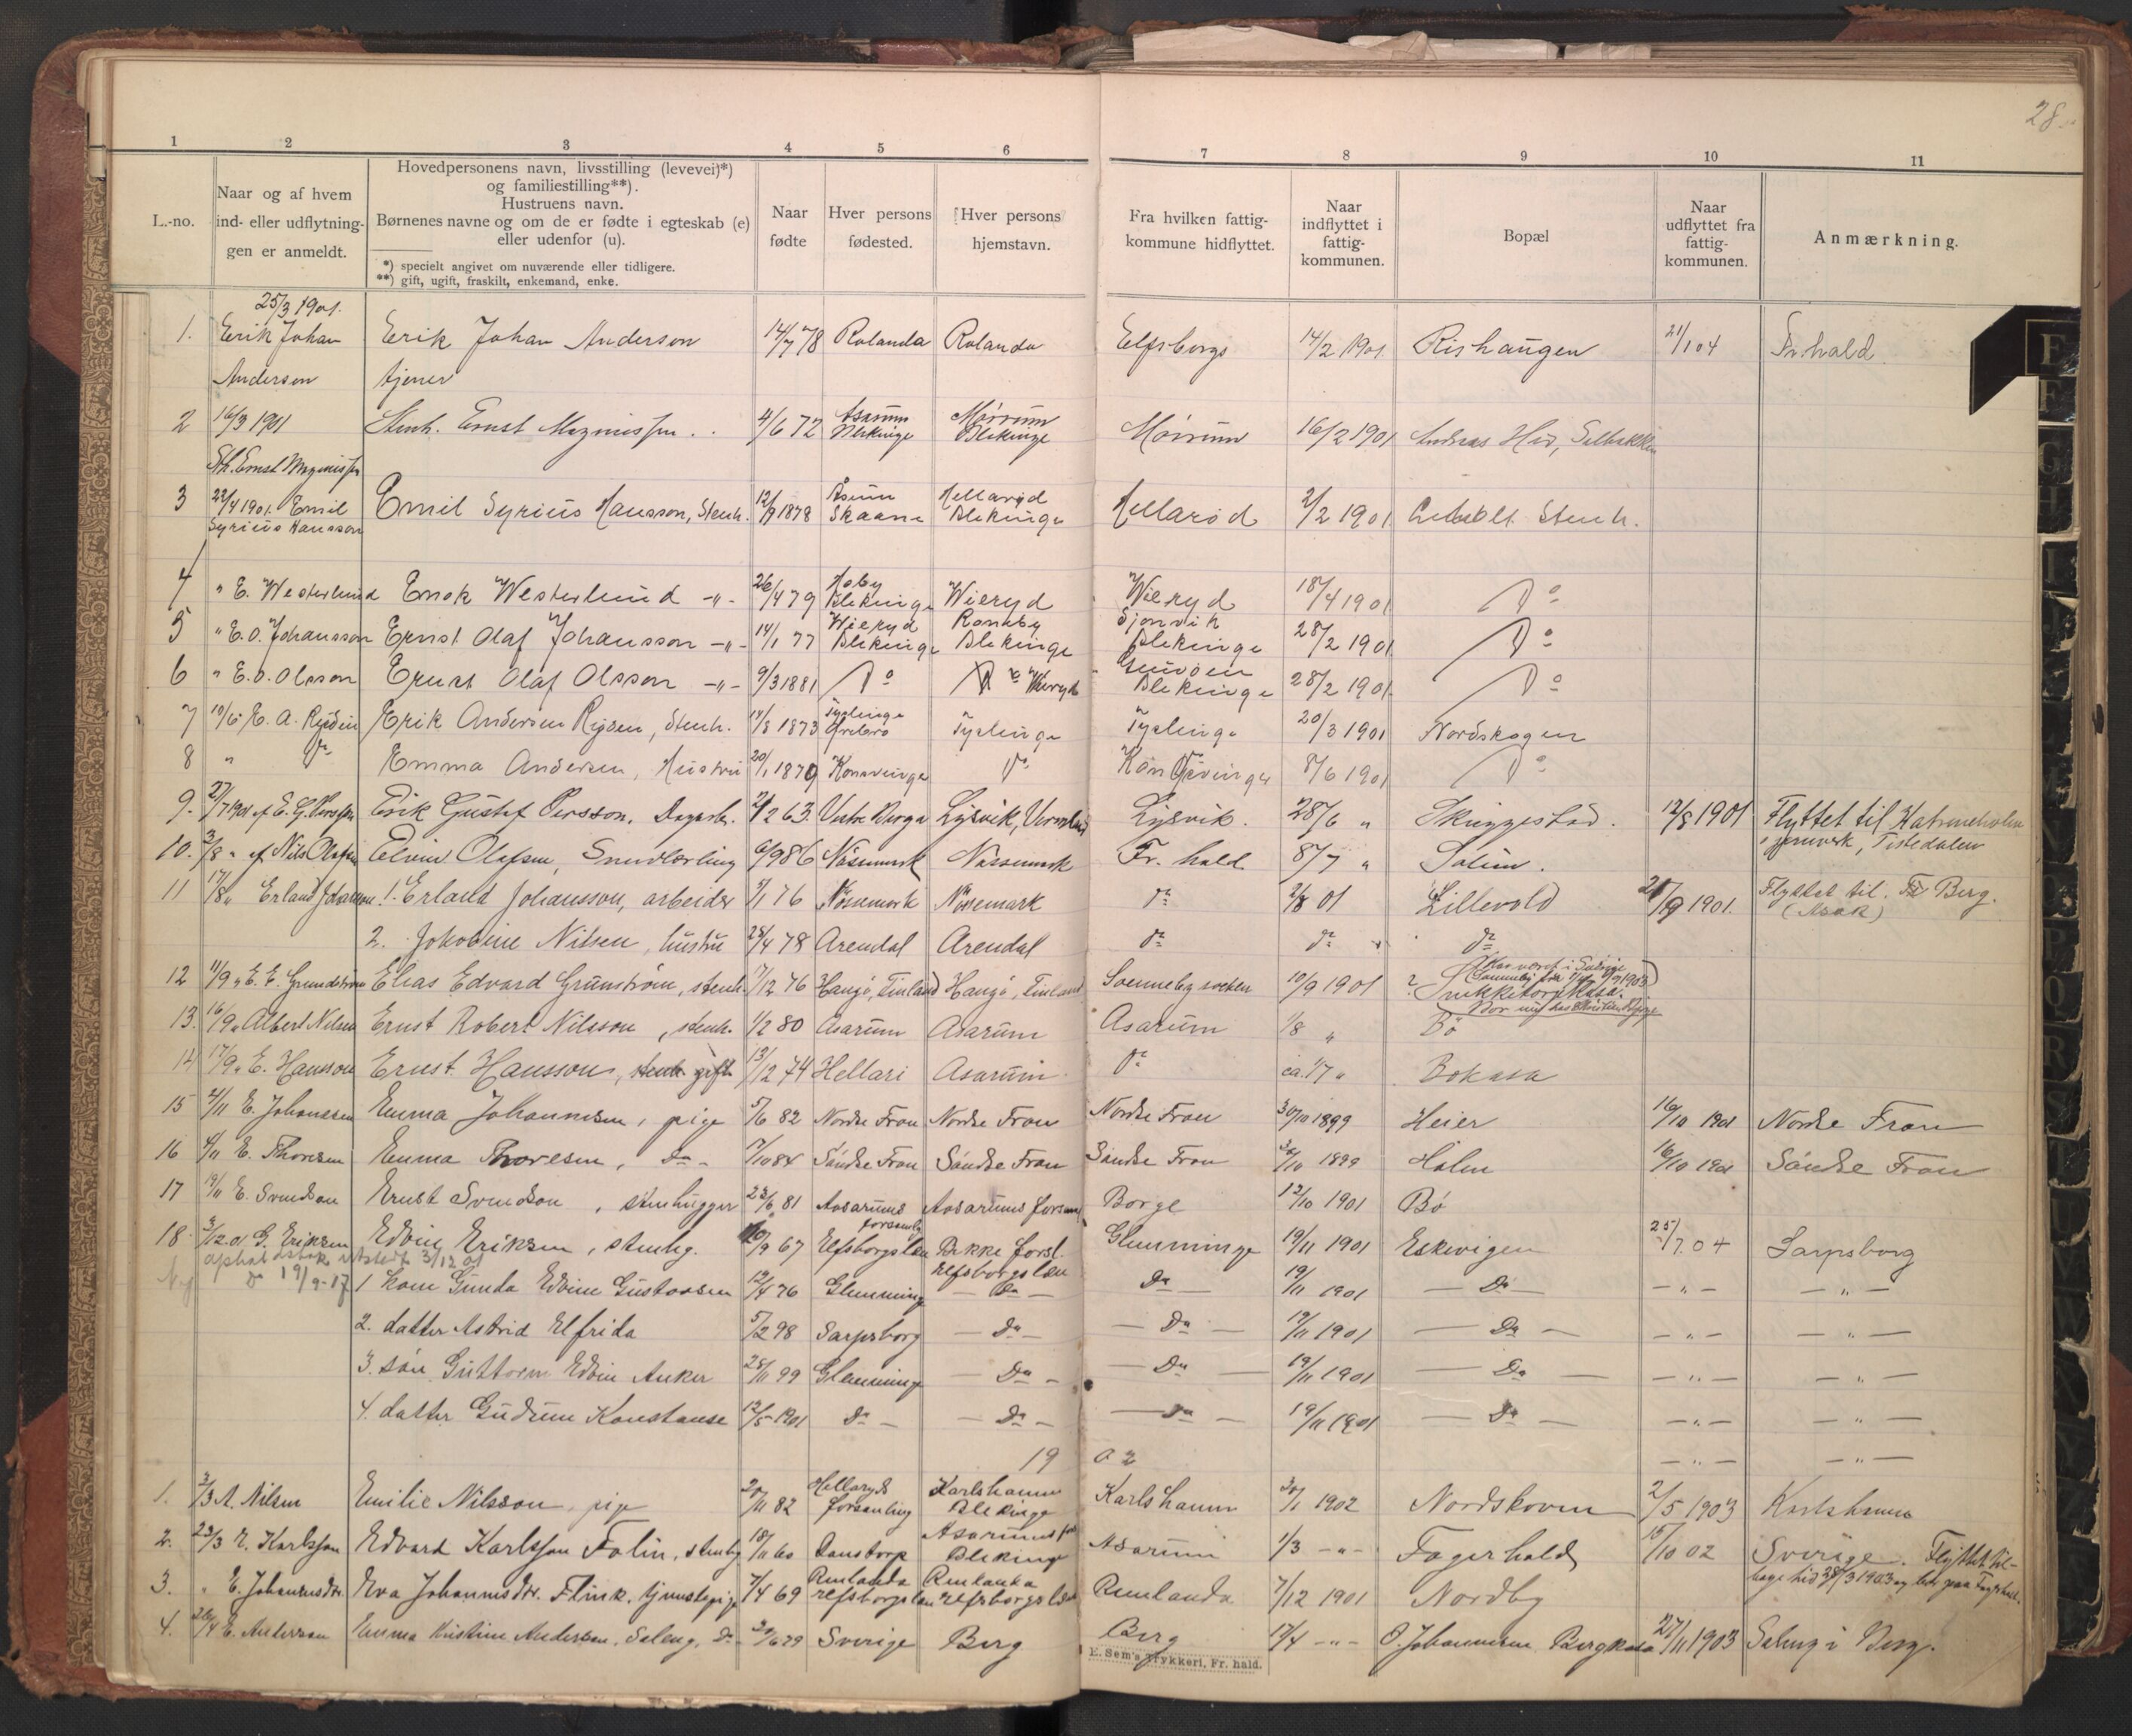 28.
1 2 3 4 5 6 7 8 9 10 11
L.-no.
Naar og af hvem
ind- eller udflytnin-
gen er anmeldt.
Hovedpersonens navn, livsstilling (levevei)*)
og familiestilling**).
Hustruens navn.
Børnenes navne og om de er fødte i egteskab (e)
eller udenfor (u).
*) specielt angivet om nuværende eller tidligere.
**) gift, ugift, fraskilt, enkemand, enke.
Naar
fødte
Hver persons
fødested.
Hver persons
hjemstavn.
Fra hvilken fattig-
kommune hidflyttet.
Naar
indflyttet i
fattig-
kommunen.
Bopæl
Naar
udflyttet fra
fattig-
kommunen.
Anmærkning.
25/3 1901.
1. Erik Johan Erik Johan Anderson 14/7 78 Rolanda Rolanda Elfsborgs 14/2 1901 Rishaugen 21/1 04 Fr.hald.
Anderson tjener
2 16/3 1901 Stenh. Ernst Magnusson 4/6 72 Asarum Blekinge Mörrum Blekinge Mörrum 16/2 1901
Sth. Ernst Magnusson
3 22/4 1901. Emil Emil Syrius Hansson, Stenh. 12/9 1878 Skaane Hellaröd Blekinge Hellaröd 2/2 1901 Stenh.
Syrius Hansson
4 " E. Westerlund Enok Westerlund -"- 26/4 79 Hoby Blekinge Wieryd Wieryd 18/4 1901 Do
5 " E. O. Johansson Ernst Olaf Johansson -"- 14/1 77 Wieryd Blekinge Ronneby Blekinge Sjonvik Blekinge 28/2 1901 Do
6 " E. O. Olsson Ernst Olaf Olsson -"- 9/3 1881 Do Do Wieryd Blekinge 28/2 1901 Do
7 10/6 E. A. Rysen Erik Andersen Rysen, Stenh. 14/8 1873 Tyslinge Örebro Tyslinge Tyslinge 20/3 1901 Nordskogen
8 " Do Emma Andersen, Hustru 20/1 1879 Konsvinge Do Konsvinge 8/6 1901 Do
9. 27/7 1901 af E. G. Persson Erik Gustaf Persson, Dagarb. 2/12 63. Lysvik, Vermland Lysvik. 28/6 " Skriggestad. 12/8 1901 Flyttet til Katrineholm
jernverk, Tistedalen
10. 3/8 " af Nils Olafsen Elvin Olafsen, Smedlærling 6/9 86 Nössemark Nössemark Fr. hald 8/7 " Solum.
11 17/8 " Erland Johansson 1. Erland Johansson, arbeider 5/1 76 Nössemark Nössemark do 2/8 01 Lillevold 28/9 1901. Flyttet til Berg.
(Asak)
2. Jakobine Nilsen, hustru 28/4 78 Arendal Arendal do do do
12 11/9 " E. E. Grundström Elias Edvard Grünström, stenh. 7/12 76 Hangö, Finland Hangö, Finland Svenneby socken 10/9 1901 ?
13. 16/9 " Albert Nilsen Ernst Robert Nilsson, stenh. 1/2 80 Asarum Asarum Asarum 1/8 " Bö
14 17/9 " E. Hansson Ernst Hansson, stenh. gift 13/12 74 Hellari Asarum do ca. 1/7 " Bokasa
15 4/11 E. Johansen Emma Johannesen, pige 5/6 82 Nordre Fron Nordre Fron Nordre Fron 30/10 1899 Heier 16/10 1901 Nordre Fron
16 4/11 E. Thoresen Emma Thoresen, do- 7/10 84 Söndre Fron Söndre Fron Söndre Fron 30/10 1899 Holm 16/10 1901 Söndre Fron
17 19/11 E. Svendson Ernst Svendson, stenhugger 23/6 81 Aasarums forsamling Aasarums forsaml Borge 12/10 1901 Bö
18 3/12 01 G. Eriksen Edvin Eriksen, stenhg. 10/9 67 Elfsborgslen Bekke forsl. Elfsborgslæn Glemminge 19/11 1901 Eskevigen 25/7 04 Sarpsborg
opholdsbok utstedt 3/12 01
Ny do 19/9-17 1 kone Gunda Edvine Gustavsen 12/4 76 Glemminge - Do - Do - 19/11 1901 - Do - - " - - " -
2. datter Astrid Elfrida 5/2 98 Sarpsborg - Do - - Do - 19/11 1901 - Do - - " - - " -
3. sön Guttorm Edvin Anker 28/11 99 Glemminge - Do - - Do - 19/11 1901 - Do - - " - - " -
4. datter Gudrun Konstanse 12/5 1901 Do - - Do - - Do - 19/11 1901 - Do - - " - - " -
19 02 - " - - " -
1. 3/3 A. Nilsen Emilie Nilsson, pige 20/11 82 Hellaryds forsamling Karlshamn Blekinge Karlshamn 30/1 1902 Nordskoven 2/5 1903 Karlshamn
2. 23/3 E. Karlsson Edvard Karlsson Folin, stenhg 18/11 60 Asarums Blekinge Asarum 1/3 -"- Fagerhold 15/10 02 Sverige. Flyttet til-
bage hid 28/3 1903
3. " E. Johannesdtr. Eva Johannesdtr. Flink, tjenestepige 7/4 69 Rmlanda Elfsborgslæn Rmlanda Elfsborgslæn Rmlanda 7/12 1901 Nordby
4. 26/4 E. Anderson Emma Kristine Anderson, Saleng, Do 30/6 79 Sverige Berg Berg 17/4 -"- O. Johannesen Bergkasa 27/11 1903 Saleng i Berg.
E. Sem's Trykkeri, Fr. hald.